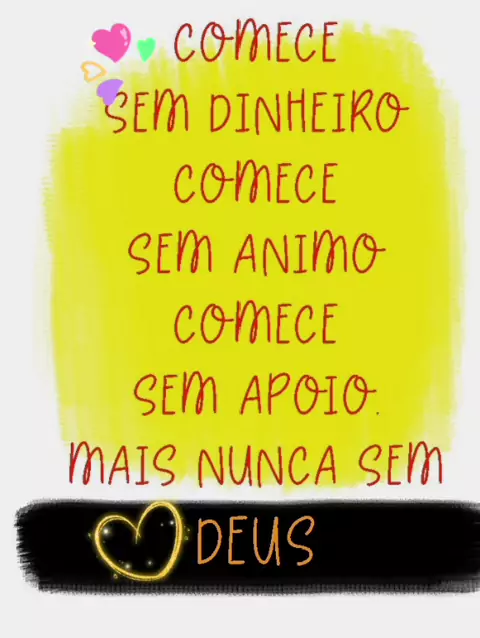 COMECE
SEM DINHEIRO
COMECE
SEM ANIMO
COMECE
SEM APOIO.
MAIS NUNCA SEM
DEUS